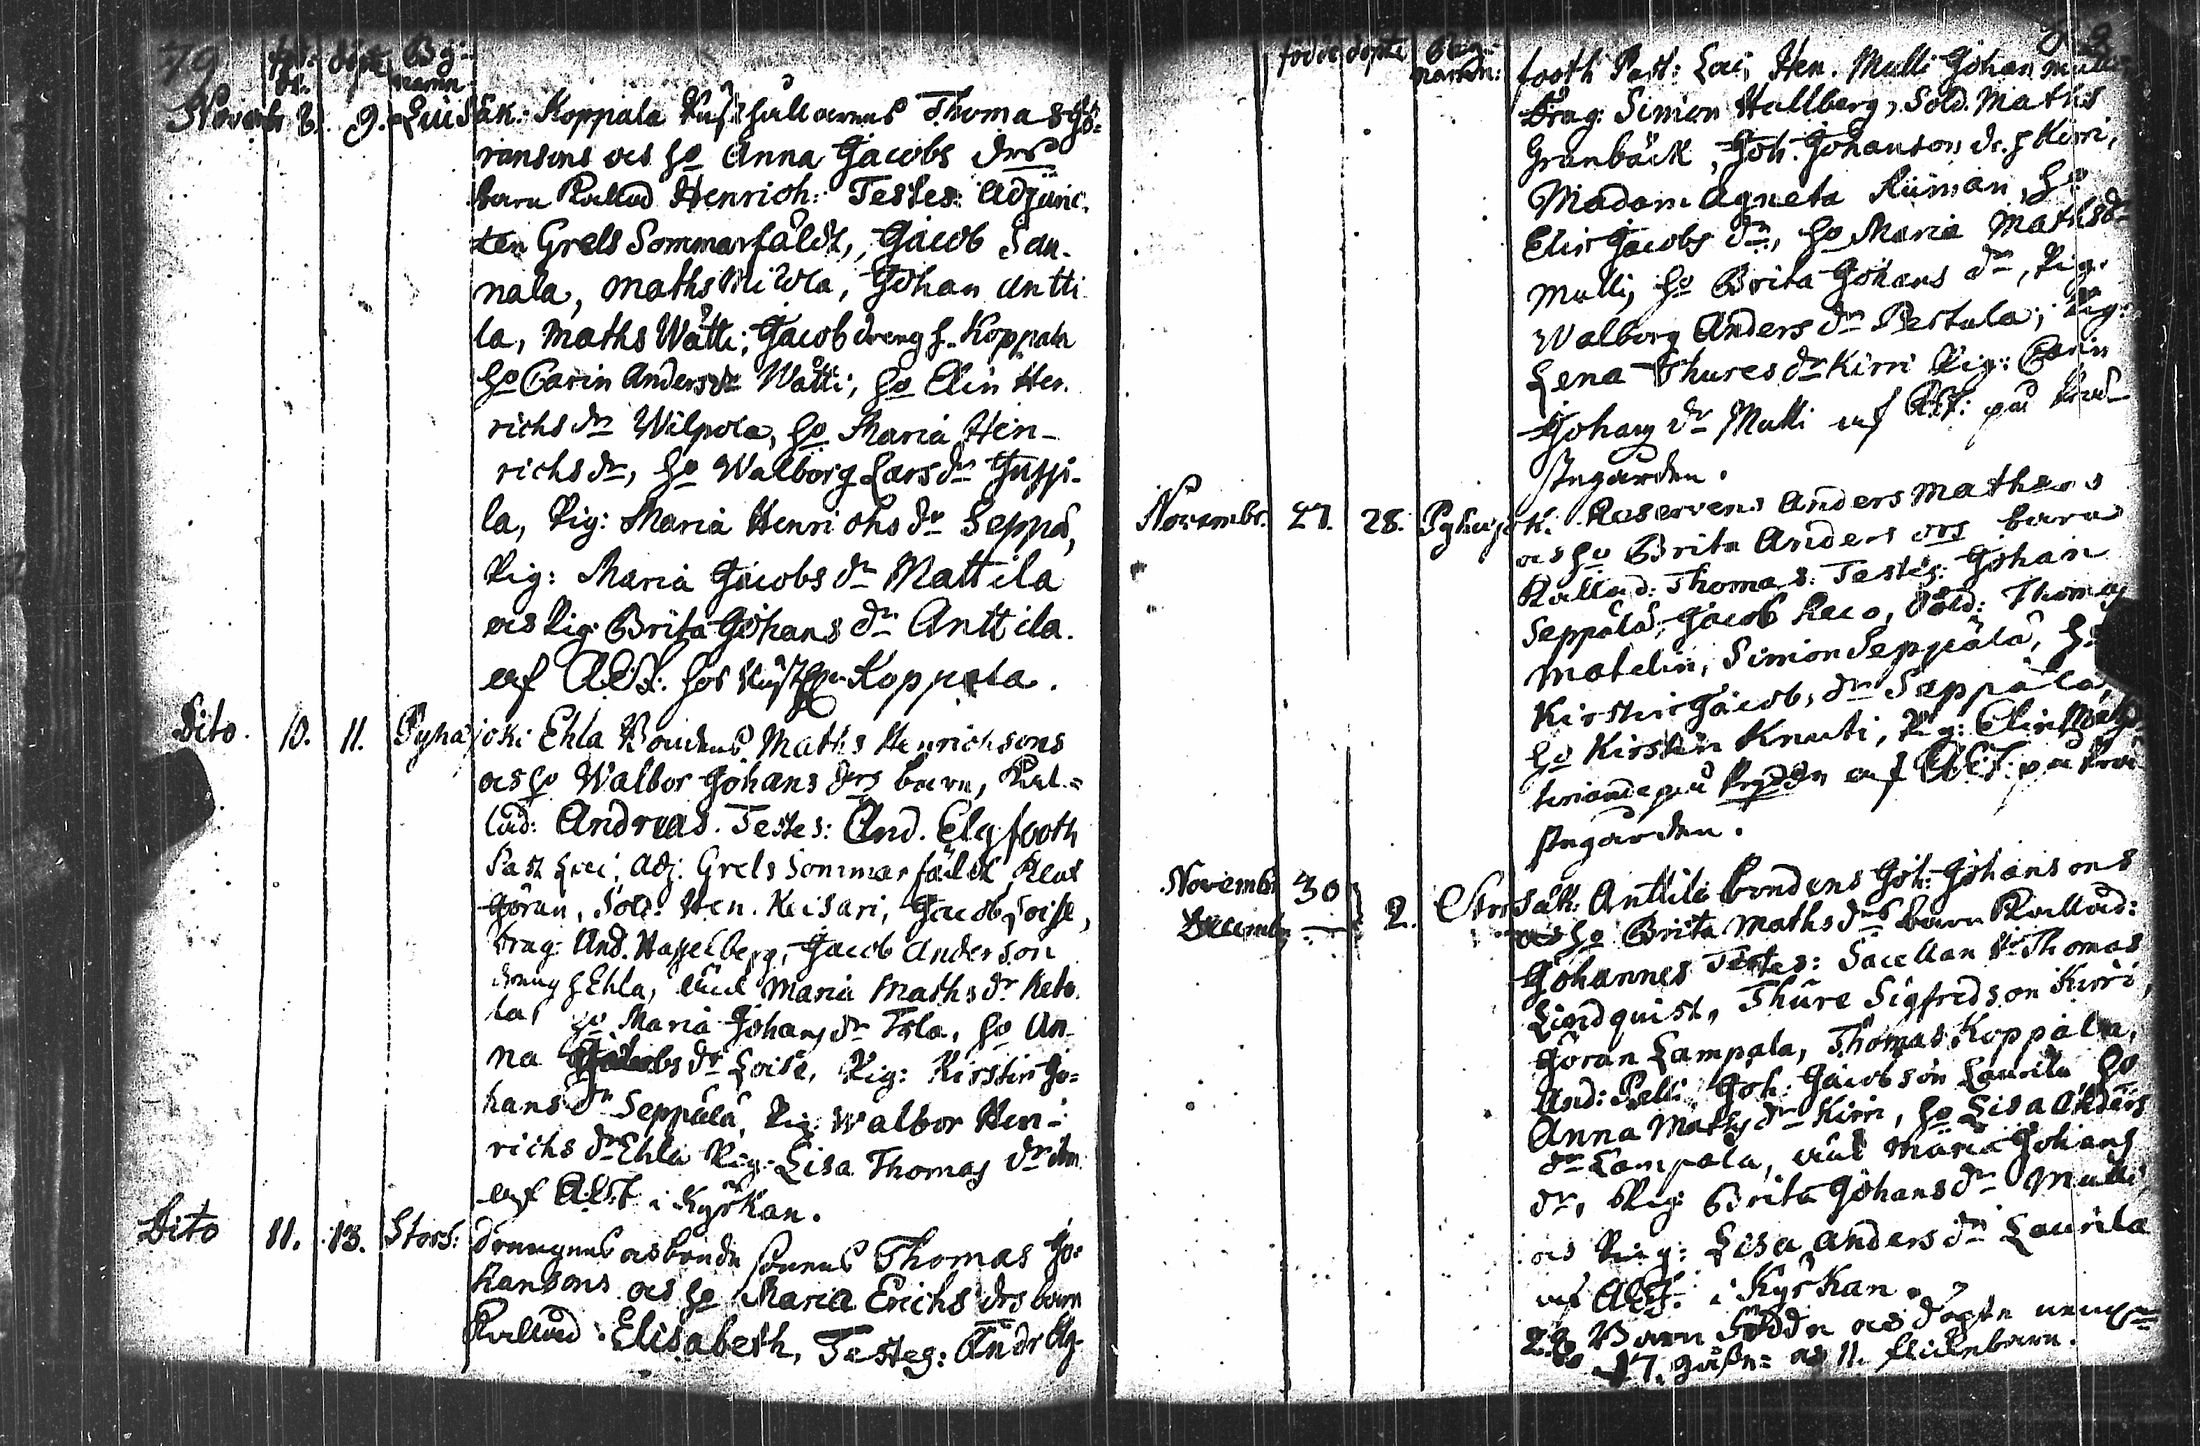 79
föd: döpte By-
de. namn
Novemb 8. 9. Luisäk: Koppala Rusthållarens Thomas Gö-
ransons och ho Anna Jacobs drs
barn Kallad Henrich: Testes: Adjunc-
ten Grels Sommarfäldt, Jacob San-
nala, Maths Micola, Johan Antti
la, Maths Wätti; Jacob dreng f. Koppala
ho Carin Andersdr Wätti, ho Elin Hen
richs dr Wilpola, ho Maria Hen-
richs dr, ho Walborg Lars dr Jussi-
la, Pig: Maria Henrichs dr Seppä,
Pig: Maria Jacobs dr Mattila
och Pig: Brita Johans dr Anttila.
af hos Koppala.
Dito. 10. 11. Pyhäjoki Ehla Bondens Maths Henrichsons
och ho Walbor Johans drs barn, Kal-
lad: Andreas. Testes: And. Elgfooth
Past Loci, Adj: Grels Sommarfäldt,
Göran, Sold: Hen. Keisari, Jacob Loise,
Drag: And. Hasselberg, Jacob Anderson
dreng f Ehla, Maria Maths dr Keto-
la, ho Maria Johans dr Tola, ho An-
na Jacobs dr Loise, Pig: Kirstin Jo-
hans dr Seppälä, Pig: Walbor Hen-
richs dr Ehla Pig: Lisa Thomas dr
af i Kyrkan.
Dito 11. 13. Stors: Drengens och bonde sonens Thomas Jo-
hansons och ho Maria Erichs drs barn
Kallad Elisabeth, Testes: Andr Elg-
födde döpte By-
namn:
footh Past: Loci, Hen. Mulli Johan Mulli
Drag: Simon Hallberg, Sold. Maths
Granbäck, Joh. Johanson dr. f Kirri,
Madam Agneta Ruman, ho
Elin Jacobs dr, ho Maria Mathsdr
Mulli, ho Brita Johans dr, Pig.
Walborg Anders dr Pestola, Pig:
Lena Thures dr Kirri Pig: Carin
Johans dr Mulli af på Prä-
stegården.
Novembr. 27. 28. Pyhäjok: Reservens Anders Mathsons
och ho Brita Anders drs barn
Kallad: Thomas. Testes: Johan
Seppälä, Jacob Reco, Sold: Thomas
Matelin, Simon Seppälä, ho
Kirstin Jacobs dr Seppälä,
ho Kirstin Knuti, Pig: Elin
på af på Prä
stegården.
Novembr 30
Decembr 2. Storsäk: Anttila bondens Joh: Johansons
och ho Brita Maths drs barn Kallad:
Johannes Testes: Sacellan Hr Thomas
Lindquist, Thure Sigfredson Kirri,
Göran Lampala, Thomas Koppala,
And: Pelli Joh: Jacobson Laurila ho
Anna Maths dr Kirri, ho Lisa Anders
dr Lampala, Maria Johans
dr, Pig: Brita Johans dr Mulli,
och Pig: Lisa Anders dr Laurila
af i Kyrkan.
28 Barn Födde och döpte
17. gåsse- och 11. flickebarn.